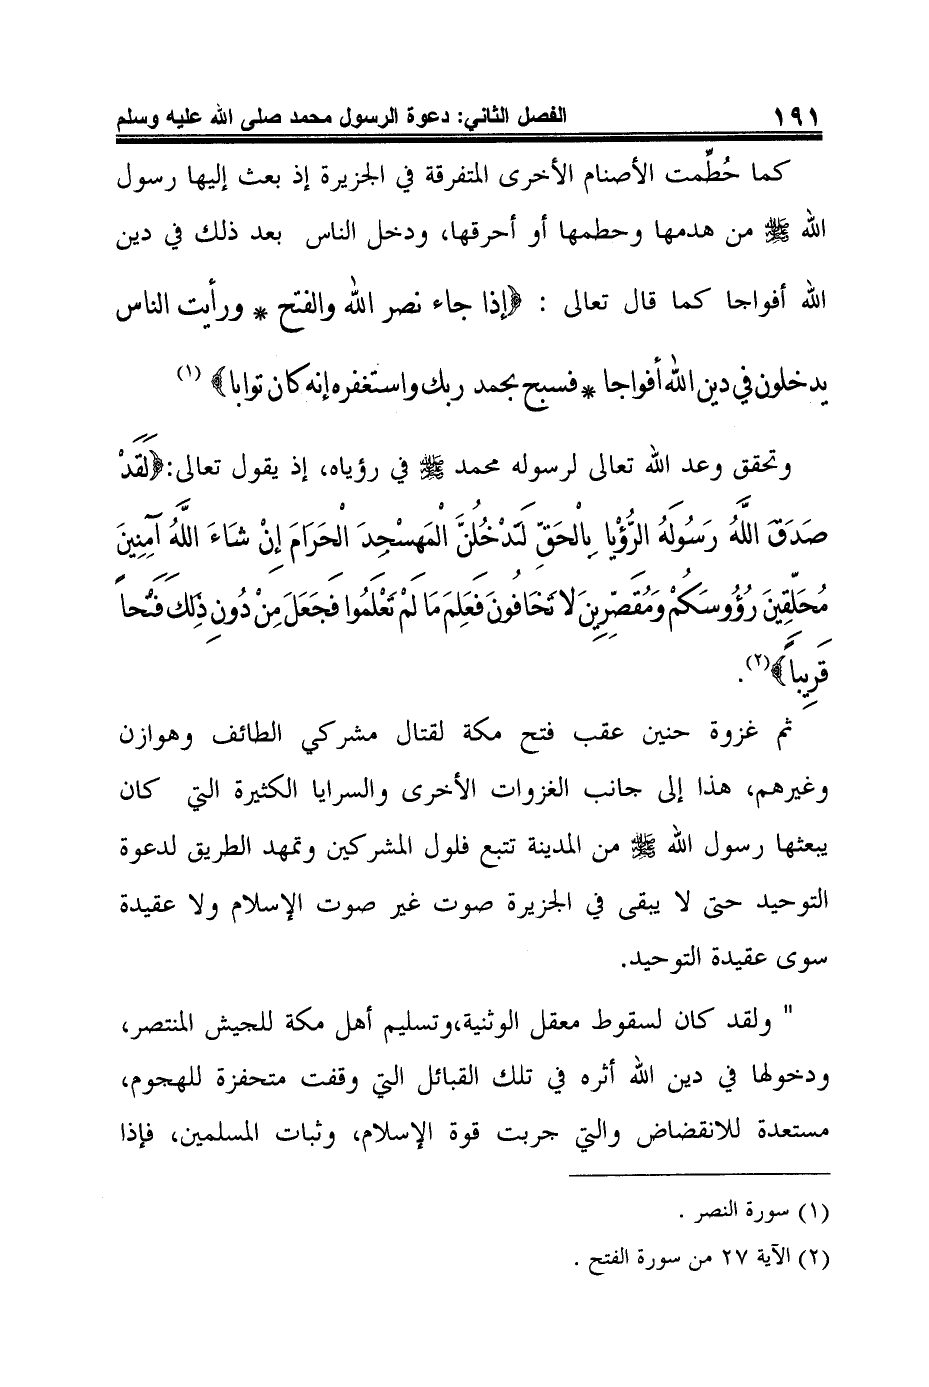 ١٩١ الفصل الثاني: دعوة الرسول محمد صلى الله عليه وسلم
كما حُطِّمت الأصنام الأخرى المتفرقة في الجزيرة إذ بعث إليها رسول
الله ﷺ من هدمها وحطمها أو أحرقها، ودخل الناس بعد ذلك في دين
الله أفواجا كما قال تعالى : ﴿إذا جاء نصر الله والفتح * ورأيت الناس
يدخلون في دين الله أفواجا * فسبح بحمد ربك واستغفره إنه كان توابا﴾ (١)
وتحقق وعد الله تعالى لرسوله محمد ﷺ في رؤياه، إذ يقول تعالى:﴿لَقَدْ
صَدَقَ اللَّهُ رَسُولَهُ الرُّؤْيا بِالْحَقِّ لَتَدْخُلُنَّ الْمَسْجِدَ الْحَرَامَ إِنْ شَاءَ اللَّهُ آمِنِينَ
مُحَلِّقِينَ رُؤُوسَكُمْ وَمُقَصِّرِينَ لَا تَخَافُونَ فَعَلِمَ مَا لَمْ تَعْلَمُوا فَجَعَلَ مِنْ دُونِ ذَلِكَ فَتْحاً
قَرِيباً﴾(٢).
ثم غزوة حنين عقب فتح مكة لقتال مشركي الطائف وهوازن
وغيرهم، هذا إلى جانب الغزوات الأخرى والسرايا الكثيرة التي كان
يبعثها رسول الله ﷺ من المدينة تتبع فلول المشركين وتمهد الطريق لدعوة
التوحيد حتى لا يبقى في الجزيرة صوت غير صوت الإسلام ولا عقيدة
سوى عقيدة التوحيد.
" ولقد كان لسقوط معقل الوثنية،وتسليم أهل مكة للجيش المنتصر،
ودخولها في دين الله أثره في تلك القبائل التي وقفت متحفزة للهجوم،
مستعدة للانقضاض والتي جربت قوة الإسلام، وثبات المسلمين، فإذا
(١) سورة النصر .
(٢) الآية ٢٧ من سورة الفتح .